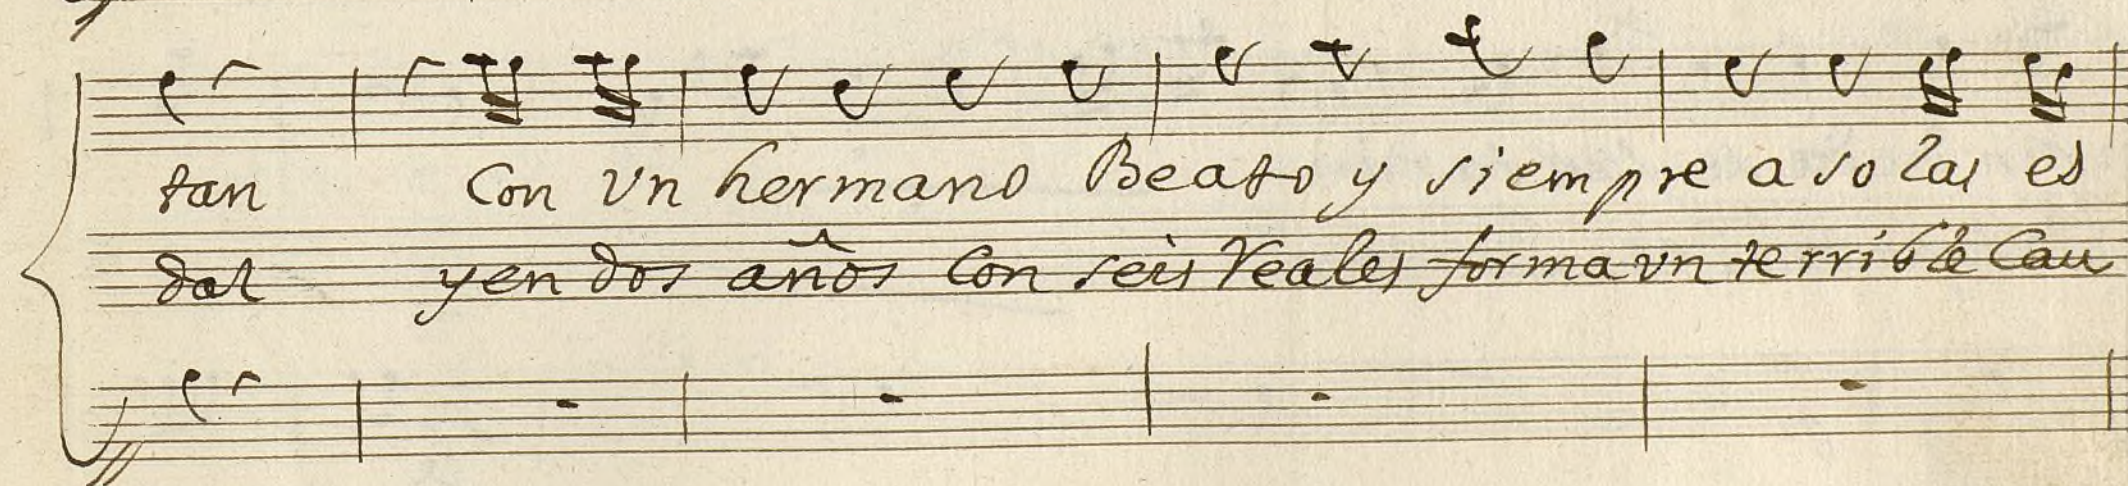 tan Con vn hermano Beato y siempre a solas es
dal y en dos años Con seis Reales forma vn terrible Cau